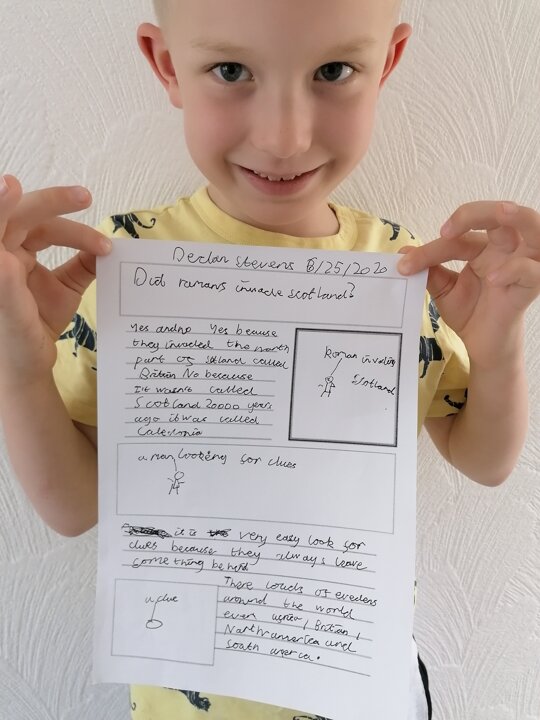 Declan Stevens 8/25/2020
Did romans invade Scotland?
Yes and no Yes because
they invaded the north
part of called
Britain No because
It wasn't called
Scotland 20000 years
ago it was called
Caledonia
Roman invading
Scotland
a man looking for clues
it is very easy look for
clues because they always leave
something behind
There loads of evedens
around the world
even africa, Britian,
North amersea and
South america.
a clue